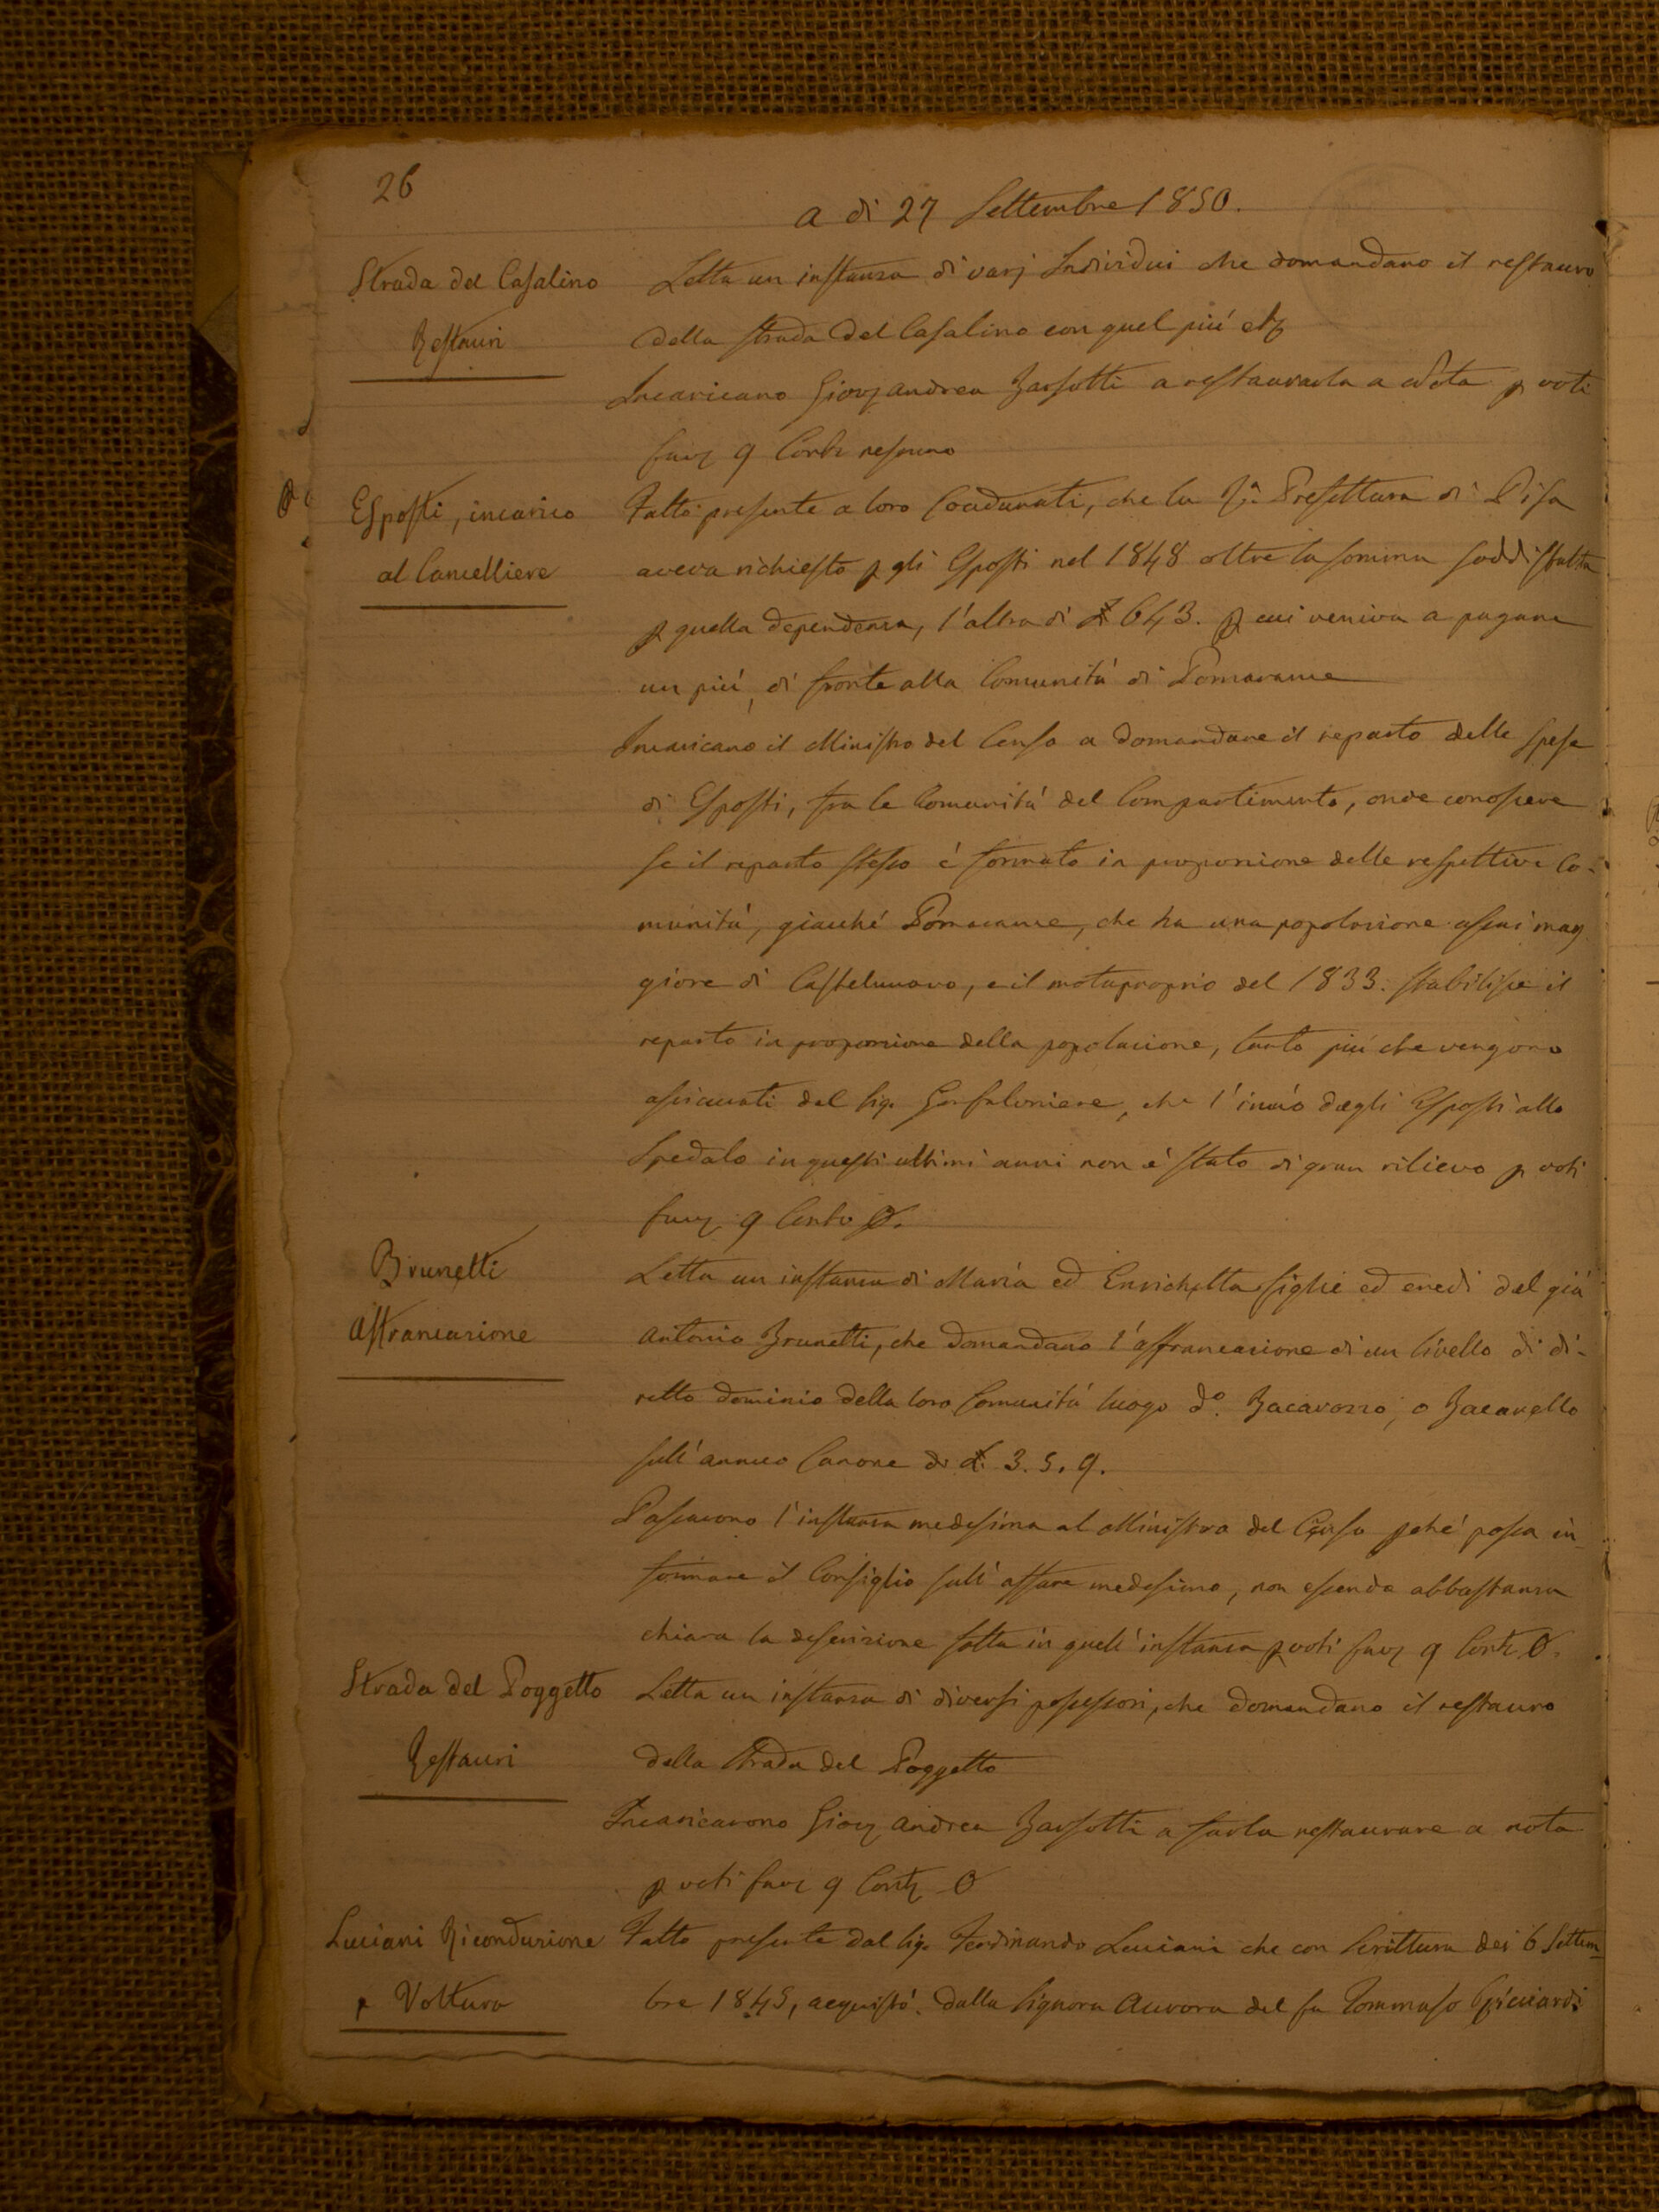 26
a di 27 Settembre 1850.
Strada del Casalino
Restauri
Letta un instanza di varj Individui che domandano il restauro
della strada del Casalino con quel più etc
Incaricano Giov Andrea Barsotti a restaurarla a nota p voti
favz 9 Contr nessuno
Esposti, incarico
al Cancelliere
Fatto presente a loro Coadunati, che la R.a Prefettura di Pisa
aveva richiesto p gli Esposti nel 1848 oltre la somma soddisfatta
p quella dependenza, l'altra di £ 643. p cui veniva a pagare
un più, di fronte alla Comunità di Pomarance
Incaricano il Ministro del Censo a domandare il reparto delle spese
di Esposti, fra le Comunità del Compartimento, onde conoscere
se il reparto stesso é formato in proporzione delle respettive Co-
munità, giacché Pomarance, che ha una popolazione assai mag
giore di Castelnuovo, e il motuproprio del 1833: stabilisce il
reparto in proporzione della popolazione, tanto più che vengono
assicurati dal Sig. Gonfaloniere, che l'invio degli Esposti allo
Spedale in questi ultimi anni non é stato di gran rilievo p voti
favz 9 Contr 0.
Brunetti
Affrancazione
Letta un instanza di Maria ed Enrichetta figlie ed eredi del già
Antonio Brunetti, che domandano l'affrancazione di un livello di di-
retto dominio della loro Comunità luogo d.o Bacarozzo, o Bacarello
sull'annuo Canone di £. 3. 5. 9.
Passarono l'instanza medesima al Ministro del Censo pché possa in
formare il Consiglio sull'affare medesimo, non essendo abbastanza
chiara la descrizione fatta in quell'instanza p voti favz 9 Contr 0.
Strada del Poggetto
Restauri
Letta un instanza di diversi possessori, che domandano il restauro
della Strada del Poggetto
Incaricarono Giov Andrea Barsotti a farla restaurare a nota
p voti favz 9 Contr 0
Luciani Riconduzione
e Voltura
Fatto presente dal Sig. Ferdinando Luciani che con Scrittura dei 6 Settem
bre 1845, acquistò dalla Signora Aurora del fu Tommaso